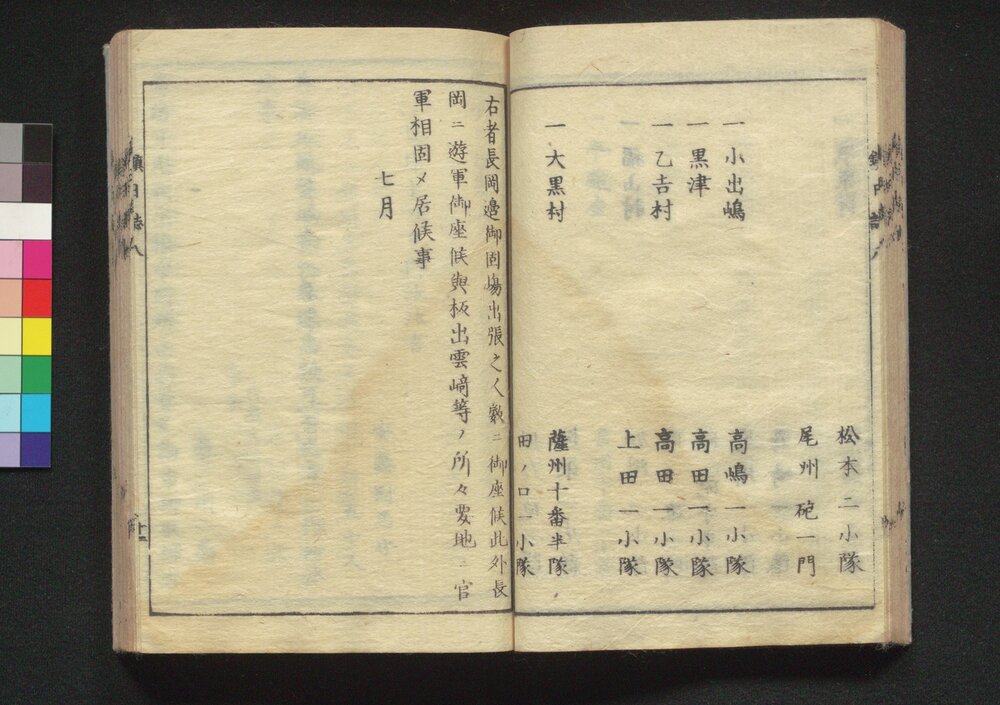 松本二小隊
尾州砲一門
一小出嶋 高嶋一小隊
一黒津 高田一小隊
一乙吉村 高田一小隊
上田一小隊
一大黒村 薩州十番半隊
田ノ口一小隊
右者長岡邉御固場出張之人數ニ御座候此外長
岡ニ遊軍御座候與板出雲﨑等ノ所々要地ニ官
軍相固メ居候事
七月
鎮日誌八
十二